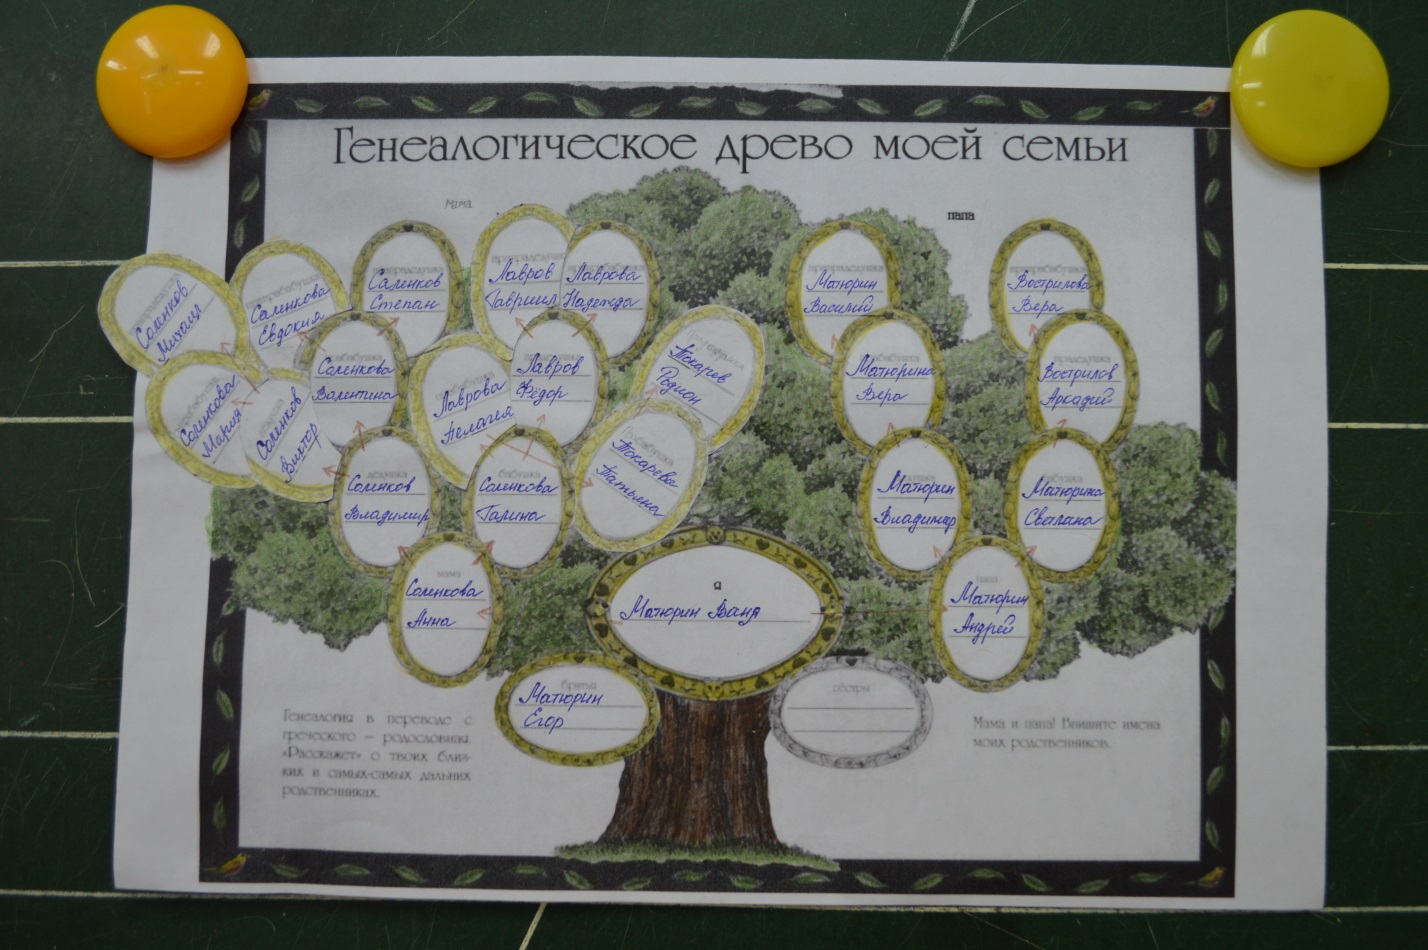 Генеалогическое древо моей семьи
мама
папа
Соменков
Михаил
прапрабабушка
Соменкова
Евдокия
Соменков
Степан
Лавров
Гавриил
Лаврова
Надежда
прапрадедушка
Матюрин
Василий
прапрабабушка
Вострилова
Вера
Соменкова
Мария
Соменков
Виктор
прабабушка
Соменкова
Валентина
Лаврова
Пелагея
Лавров
Фёдор
Токарев
Родион
прабабушка
Токарева
Татьяна
Матюрина
Вера
прадедушка
Вострилов
Аркадий
дедушка
Соменков
Владимир
бабушка
Соменкова
Галина
Матюрин
Владимир
бабушка
Матюрина
Светлана
мама
Соменкова
Анна
я
Матюрин Ваня
папа
Матюрин
Андрей
братья
Матюрин
Егор
сёстры
Генеалогия в переводе с
греческого – родословная.
«Расскажет» о твоих близ-
ких и самых-самых дальних
родственниках.
Мама и папа! Впишите имена
моих родственников.